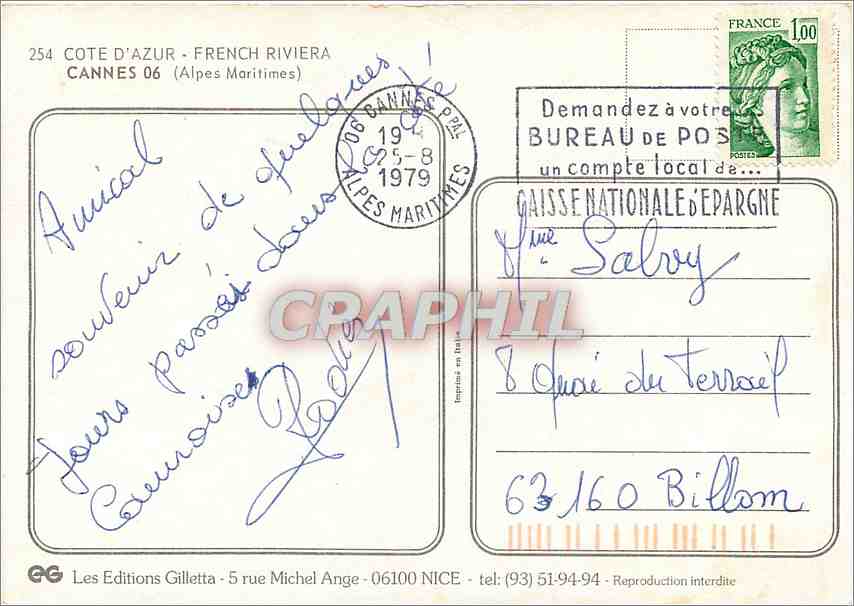 254 COTE D'AZUR - FRENCH RIVIERA
CANNES 06 (Alpes Maritimes)
FRANCE 1,00
POSTES
06 CANNES PPAL
19 H
25-8
1979
ALPES MARITIMES
Demandez à votre
BUREAU DE POSTE
un compte local de...
CAISSE NATIONALE d'EPARGNE
Amical
souvenir de quelques
jours passés dans la cité
Cannoise
Mme Salvy
8 Quai du Terrail
63160 Billom
CPARPHIL
Imprimé en Italie
EG Les Editions Gilletta - 5 rue Michel Ange - 06100 NICE - tel: (93) 51-94-94 - Reproduction interdite